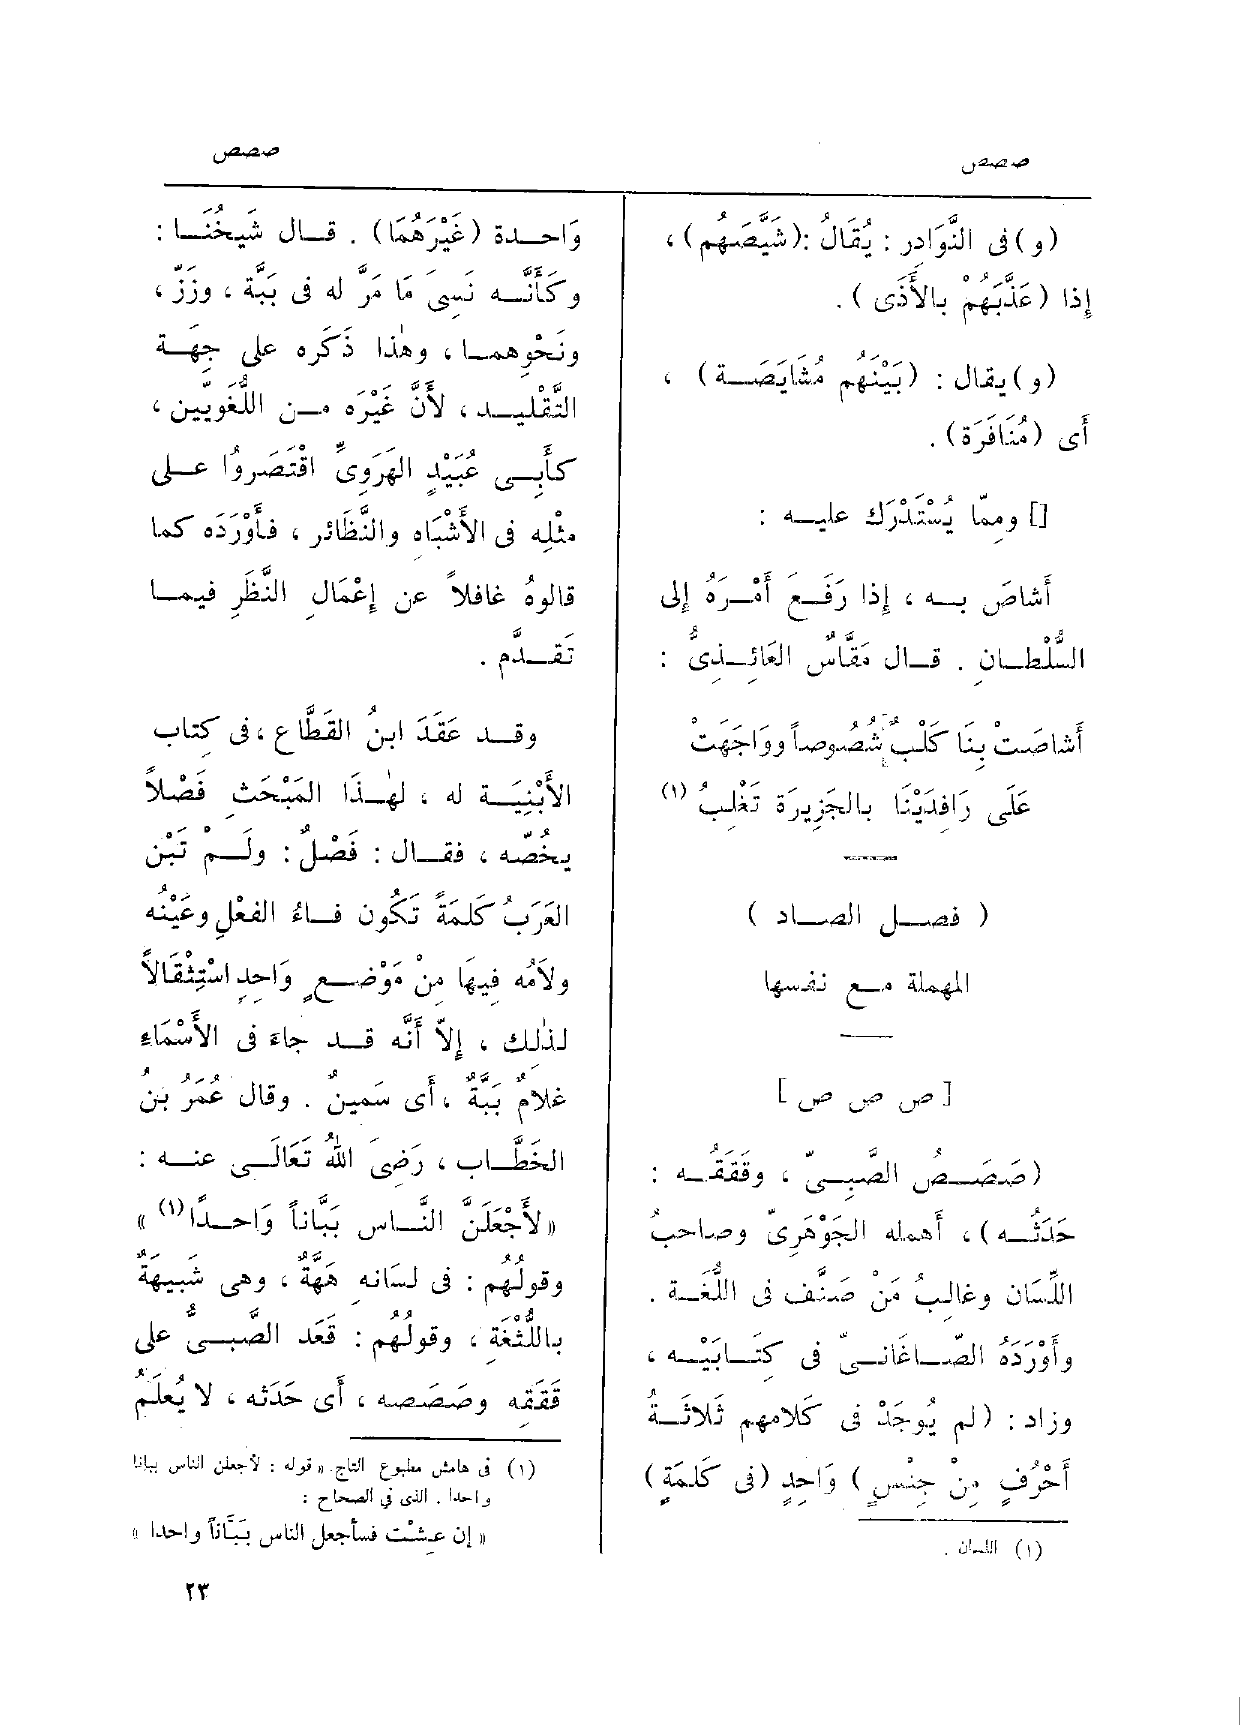 صصص
صصص
(و) فى النَّوَادر : يُقَالُ :(شَيَّصَهُم) ،
إذا (عَذَّبَهُمْ بالأَذَى ) .
(و) يقال : (بَيْنَهُم مُشَايَصَـة) ،
أَى (مُنَافَرَة) .
[] وممّا يُسْتَدْرَك عليـه :
أَشاصَ بـه ، إذا رَفَـعَ أَمْـرَهُ إلى
السُّلْطـان . قـال مَقَّاسٌ العَائـذىُّ :
أَشاصَتْ بِنَا كَلْبٌ شُصُوصاً وَوَاجَهَتْ
عَلَى رَافِدَيْنَا بالجَزِيرَة تَغْلِبُ (١)
( فصـل الصـاد )
المهملة مـع نفسها
[ ص ص ص ]
(صَصَـصَ الصَّبِـىّ ، وقَقَقُـه :
حَدَثُـه ) ، أَهمله الجَوْهَرِىّ وصاحبُ
اللِّسَان وغالبُ مَنْ صَنَّف فى اللُّغَـة .
وأَوْرَدَهُ الصّـاغَانـىّ فى كِتَـابَيْـه ،
وزاد : (لم يُوجَدْ فى كَلامهم ثَلاثَـةُ
أَحْرُفٍ مِنْ جِنْسٍ ) وَاحِدٍ (فى كَلِمَةٍ )
(١) اللسان .
وَاحـدة (غَيْرَهُمَا) . قـال شَيخُنَـا :
وكَأَنَّـه نَسِىَ مَا مَرَّ له فى بَبَّة ، وزَزّ ،
ونَحْوِهمـا ، وهٰذا ذَكَره على جِهَـة
التَّقْليـد ، لأَنَّ غَيْرَه مـن اللُّغَويّين ،
كأَبِـى عُبَيْدٍ الهَرَوِىِّ اقْتَصَروُا عـلى
مثْلِه فى الأَشْبَاه والنَّظَائر ، فأَوْرَدَه كما
قالوهُ غافلاً عن إعْمَالِ النَّظَرِ فيمـا
تَقَـدَّم .
وقـد عَقَدَ ابنُ القَطَّاع ، فى كِتاب
الأَبْنِيَـة له ، لهٰـذَا المَبْحَث فَصْلاً
يخُصّه ، فقـال : فَصْلٌ : ولَـمْ تَبْنِ
العَرَبُ كَلمَةً تَكُون فـاءُ الفعْلِ وعَيْنُه
ولاَمُه فيهَا مِنْ مَوْضـعٍ وَاحِدٍ اسْتِثْقَالاً
لذٰلك ، إلاّ أَنَّه قـد جاءَ فى الأَسْمَاءِ
غلامٌ بَبَّةٌ ، أَى سَمينٌ . وقال عُمَرُ بنُ
الخَطَّـاب ، رَضِىَ اللّٰهُ تَعَالَـى عنـه :
« لأَجْعَلَنَّ النَّـاس بَبَّاناً وَاحـداً (١) »
وقولُهُم : فى لسَانِه هَهَّةٌ ، وهى شَبِيهَةٌ
باللُّثْغَة ، وقولُهُم : قَعَد الصَّبِـىُّ على
قَقَقِه وصَصَصِه ، أَى حَدَثه ، لا يُعلَمُ
(١) فى هامش مطبوع التاج « قوله : لأجعلن الناس ببانا
واحدا . الذى فى الصحاح :
« إن عِشْت فسأجعل الناس بَبَّاناً واحدا »
٢٣